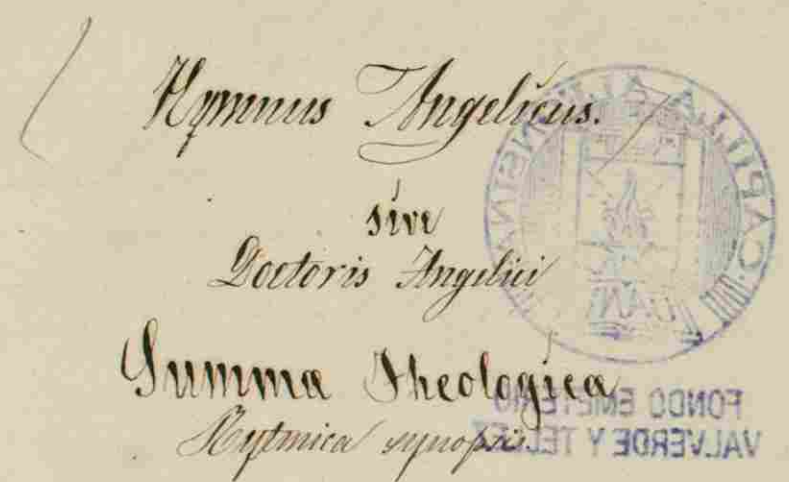 Hymnus Angelicus.
sive
Doctoris Angelici
Summa Theologica
Rytmica synopsis.
FONDO EMETERIO
VALVERDE Y TELLEZ
CAPILLA ALFONSINA